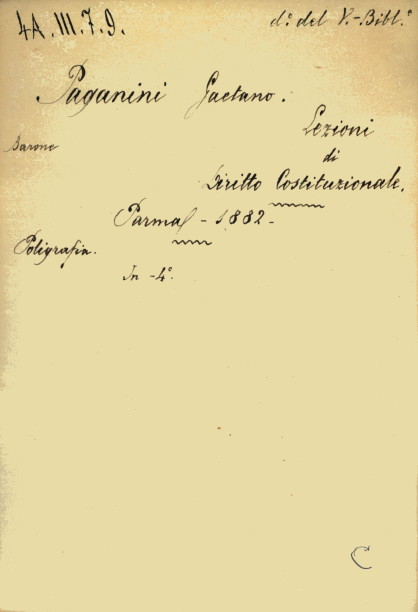 4A.III.7.9.
d.° del V.-Bibl.°
Paganini Gaetano.
Barone
Lezioni
di
Diritto Costituzionale.
Parma - 1882 -
Poligrafia.
In - 4.°
C